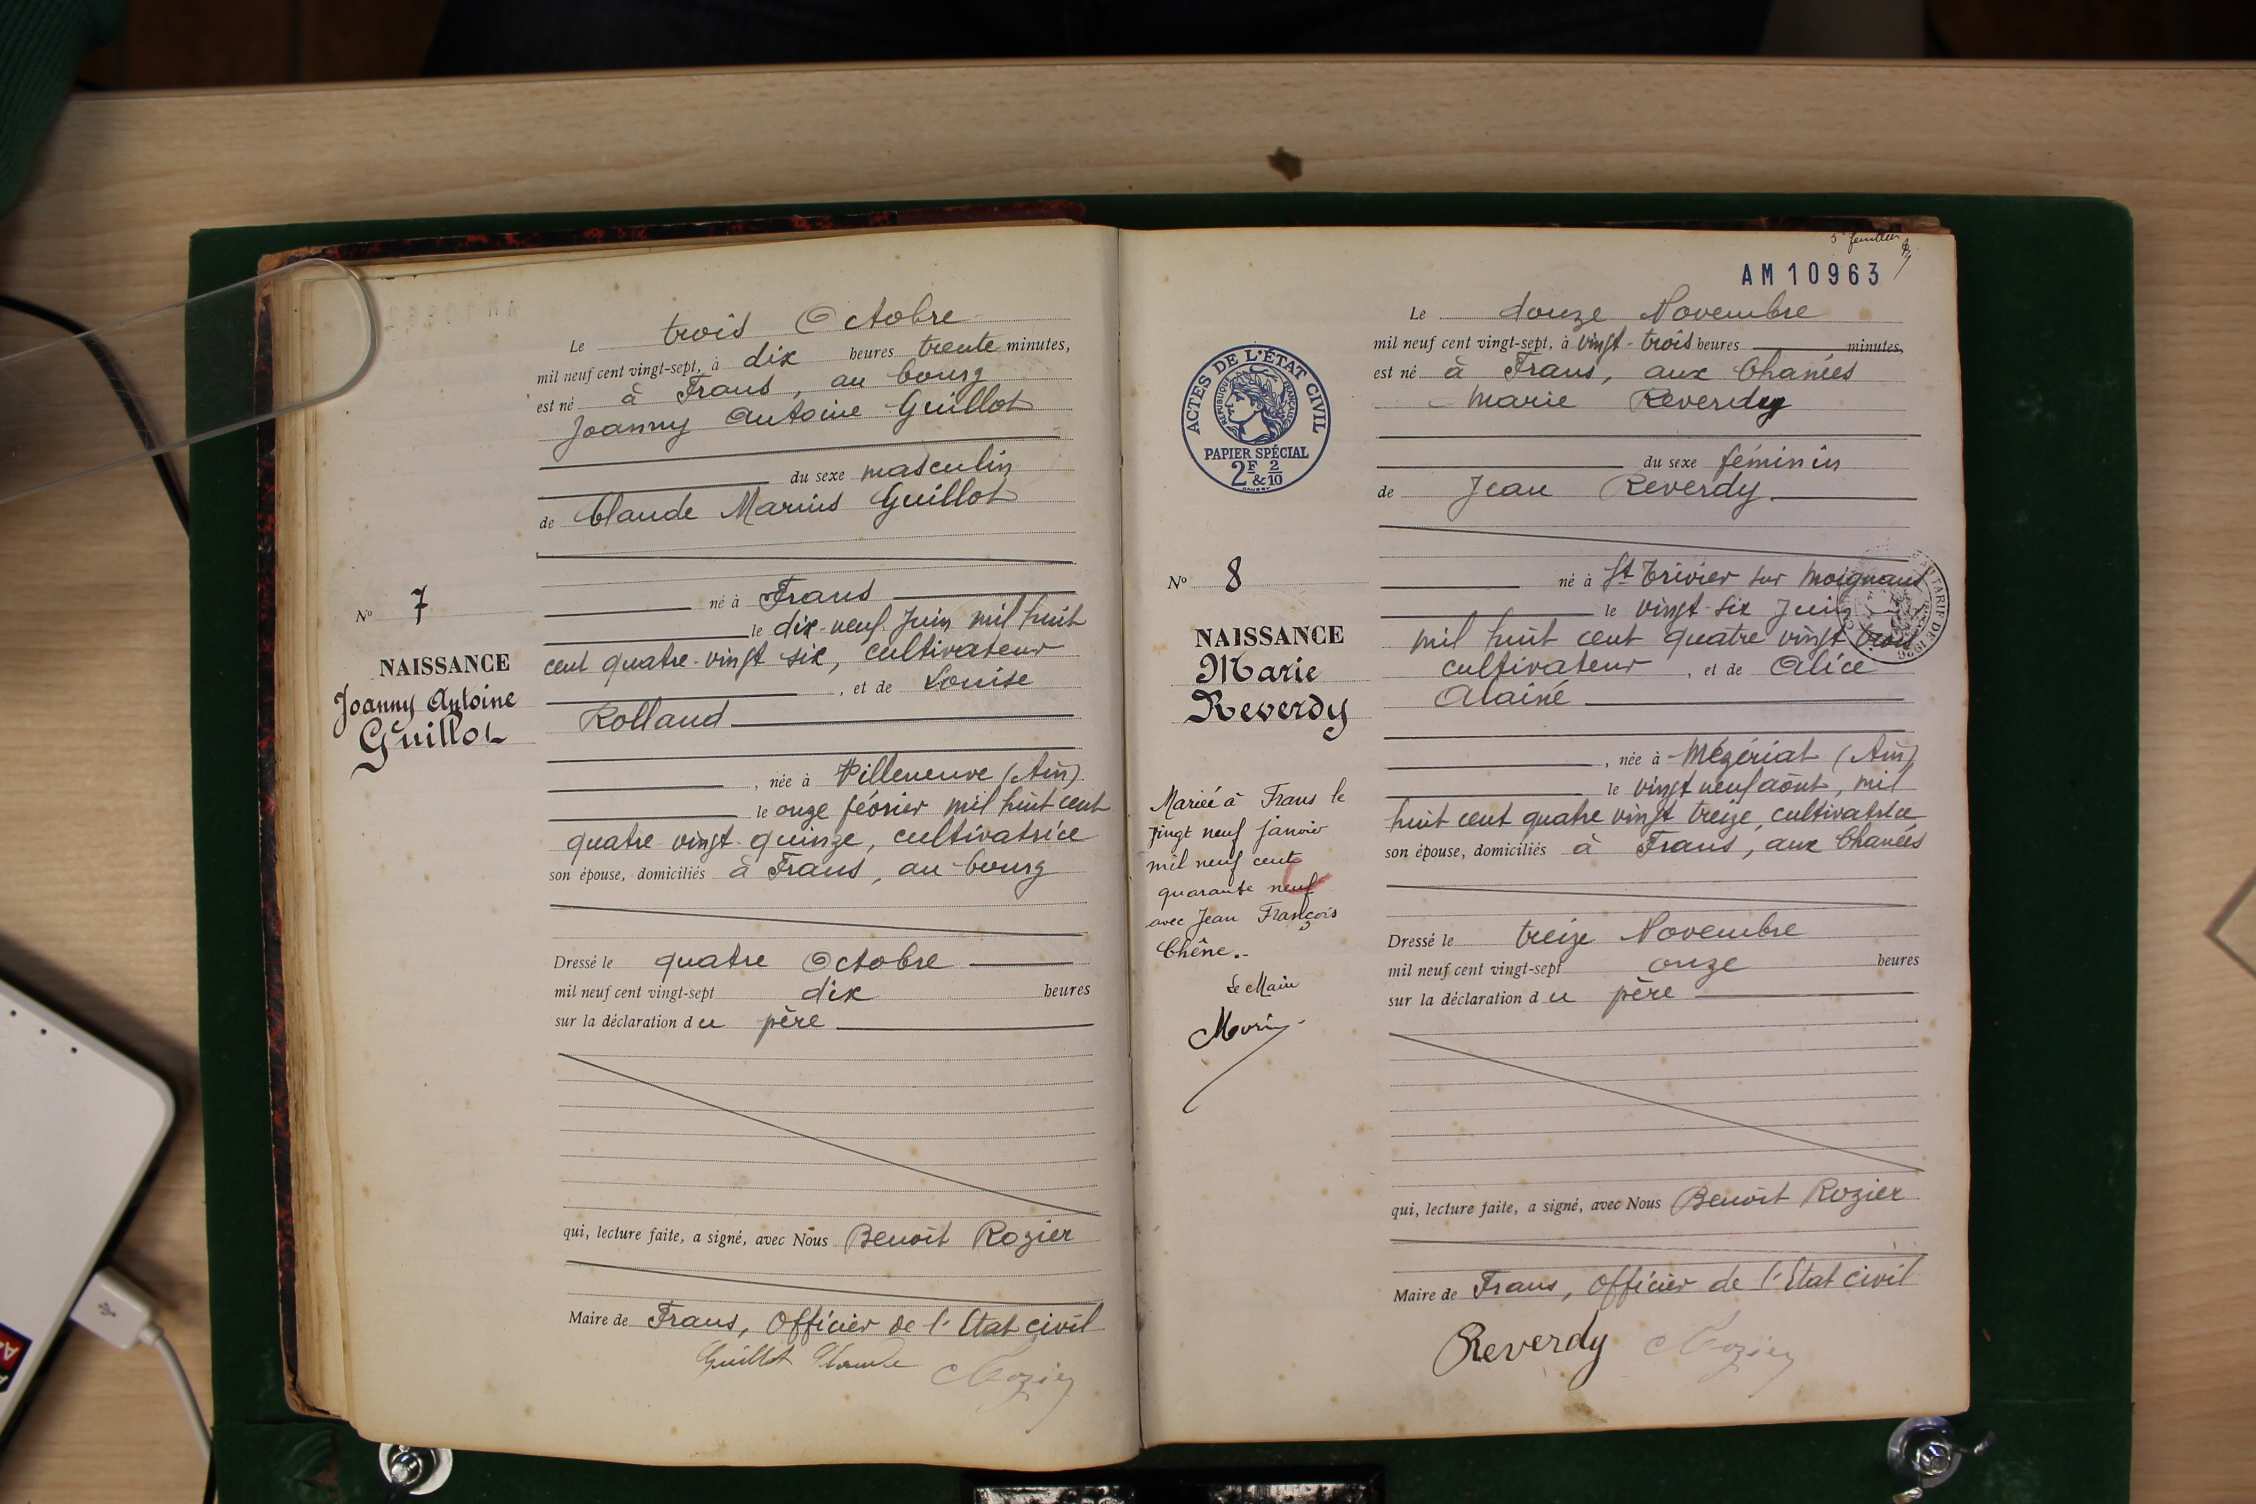 Le trois Octobre
mil neuf cent vingt-sept, à dix heures trente minutes,
est né à Frans, au bourg
Joanny Antoine Guillot
du sexe masculin
de Claude Marius Guillot
né à Frans
le dix-neuf Juin mil huit
cent quatre-vingt six, cultivateur
, et de Louise
Rolland
, née à Villeneuve (Ain)
le onze février mil huit cent
quatre vingt quinze, cultivatrice
son épouse, domiciliés à Frans, au bourg
Dressé le quatre Octobre
mil neuf cent vingt-sept dix heures
sur la déclaration du père
qui, lecture faite, a signé, avec Nous Benoît Rozier
Maire de Frans, Officier de l'Etat civil
Guillot Claude Rozier
N° 7
NAISSANCE
Joanny Antoine
Guillot
5e feuillet
AM 10963
Le douze Novembre
mil neuf cent vingt-sept, à vingt-trois heures minutes,
est né à Frans, aux Chanées
Marie Reverdy
du sexe féminin
de Jean Reverdy
né à St Trivier sur Moignans
le vingt-six Juin
mil huit cent quatre vingt trois
cultivateur, et de Alice
Alainé
, née à Mézériat (Ain)
le vingt neuf août, mil
huit cent quatre vingt treize, cultivatrice
son épouse, domiciliés à Frans, aux Chanées
Dressé le treize Novembre
mil neuf cent vingt-sept onze heures
sur la déclaration du père
qui, lecture faite, a signé, avec Nous Benoît Rozier
Maire de Frans, Officier de l'Etat civil
Reverdy Rozier
ACTES DE L'ÉTAT CIVIL
RÉPUBLIQUE FRANÇAISE
PAPIER SPÉCIAL
2F & 2/10
N° 8
NAISSANCE
Marie
Reverdy
Mariée à Frans le
vingt neuf janvier
mil neuf cent
quarante neuf
avec Jean François
Chêne.-
Le Maire